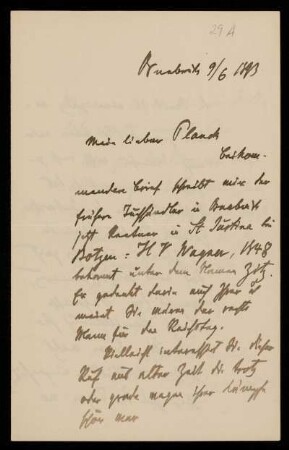 29 A
9/6 1893
Mein lieber Planck
beikom-
mender Brief schreibt mir der
frühere Tuchhändler in
jetzt Rentner in St Justina bei
Botzen: H V Wagner, 1848
bekannt unter dem Namen
Er gedenkt darin auch Ihrer u
meint Sie wären der rechte
Mann für den Reichstag.
Vielleicht interessirt Sie dieser
Ruf aus alter Zeit die trotz
oder grade wegen ihrer